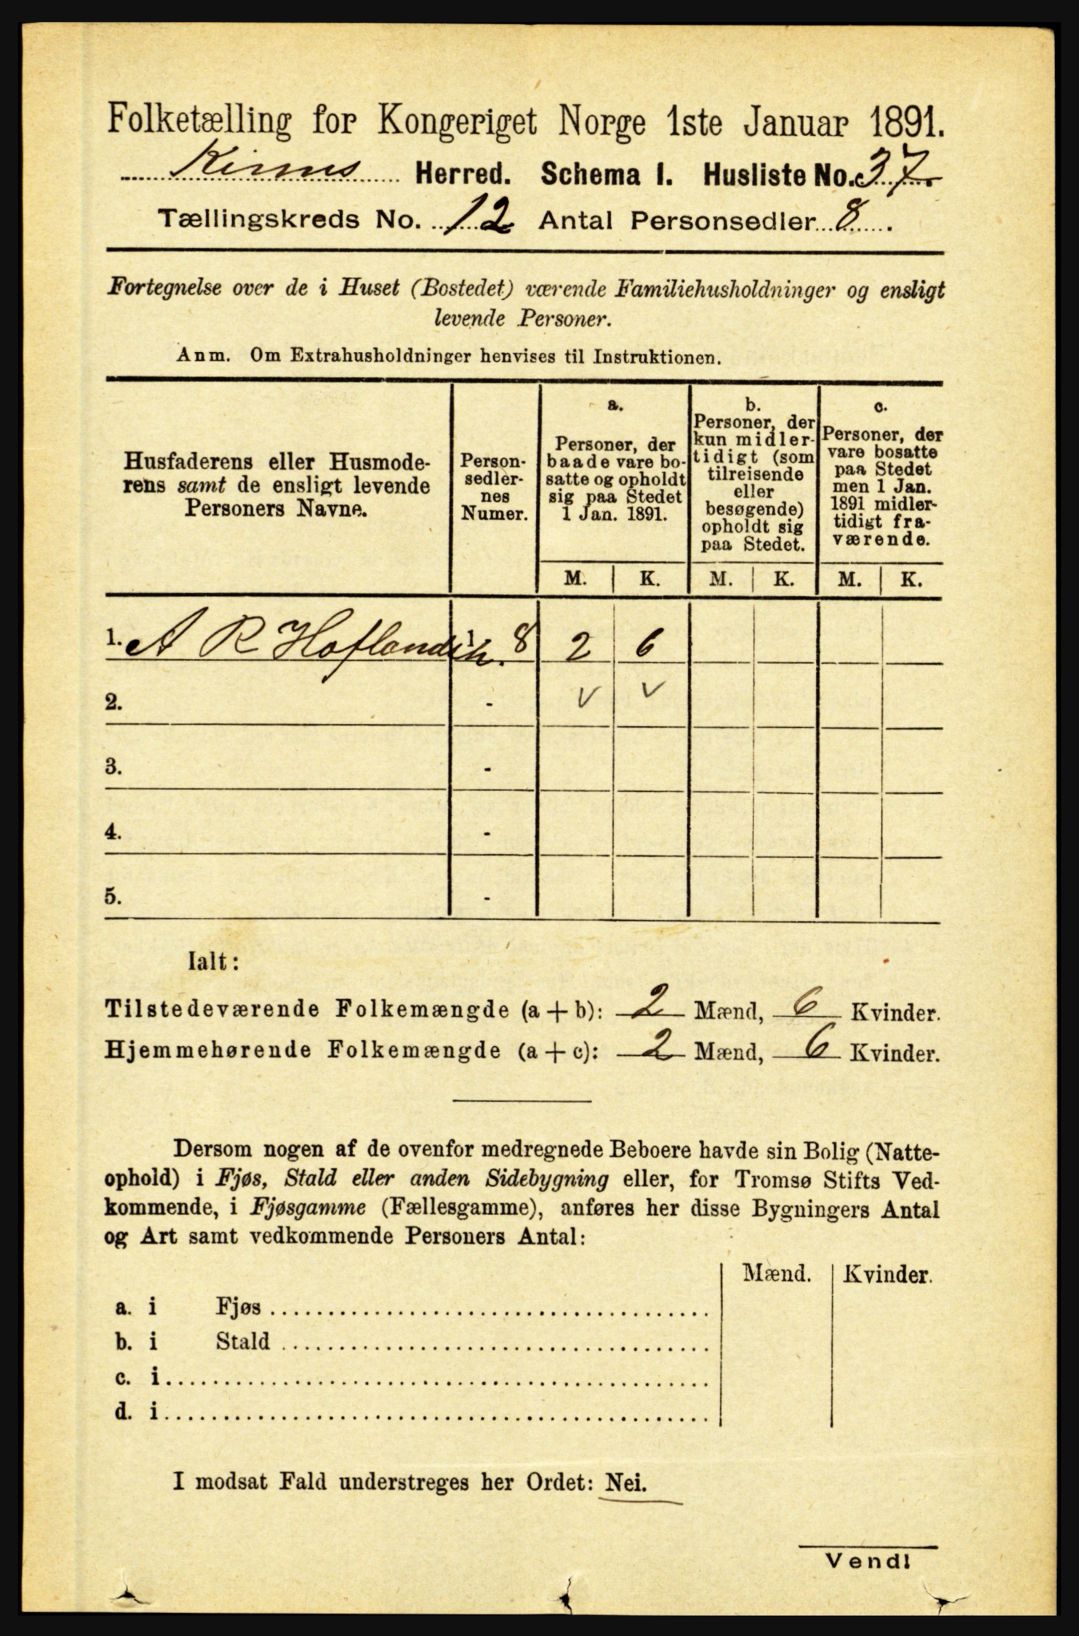 Folketælling for Kongeriget Norge 1ste Januar 1891.
Kinns Herred. Schema I. Husliste No. 37.
Tællingskreds No. 12 Antal Personsedler 8.
Fortegnelse over de i Huset (Bostedet) værende Familiehusholdninger og ensligt
levende Personer.
Anm. Om Extrahusholdninger henvises til Instruktionen.
Husfaderens eller Husmode-
rens samt de ensligt levende
Personers Navne.
Person-
sedler-
nes
Numer.
a.
Personer, der
baade vare bo-
satte og opholdt
sig paa Stedet
1 Jan. 1891.
b.
Personer, der
kun midler-
tidigt (som
tilreisende
eller
besøgende)
opholdt sig
paa Stedet.
c.
Personer, der
vare bosatte
paa Stedet
men 1 Jan.
1891 midler-
tidigt fra-
værende.
M. K. M. K. M. K.
1. A R Hofland 1 8 2 6
2. - v v
3. -
4. -
5. -
Ialt:
Tilstedeværende Folkemængde (a + b): 2 Mænd, 6 Kvinder.
Hjemmehørende Folkemængde (a + c): 2 Mænd, 6 Kvinder.
Dersom nogen af de ovenfor medregnede Beboere havde sin Bolig (Natte-
ophold) i Fjøs, Stald eller anden Sidebygning eller, for Tromsø Stifts Ved-
kommende, i Fjøsgamme (Fællesgamme), anføres her disse Bygningers Antal
og Art samt vedkommende Personers Antal:
Mænd. Kvinder.
a. i Fjøs
b. i Stald
c. i
d. i
I modsat Fald understreges her Ordet: Nei.
Vend!